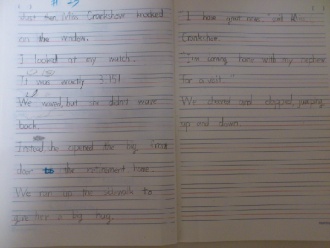 Just then, Miss Crankshaw knocked
on the window.
I looked at my watch.
It was exactly 3:15!
We waved, but she didn't wave
back.
Instead, he opened the big front
door to the retirement home.
We ran up the sidewalk to
give her a big hug.
I have your now," said Mrs.
"I'm coming home with my
for a visit."
We cheered and clapped, jumping
up and down.